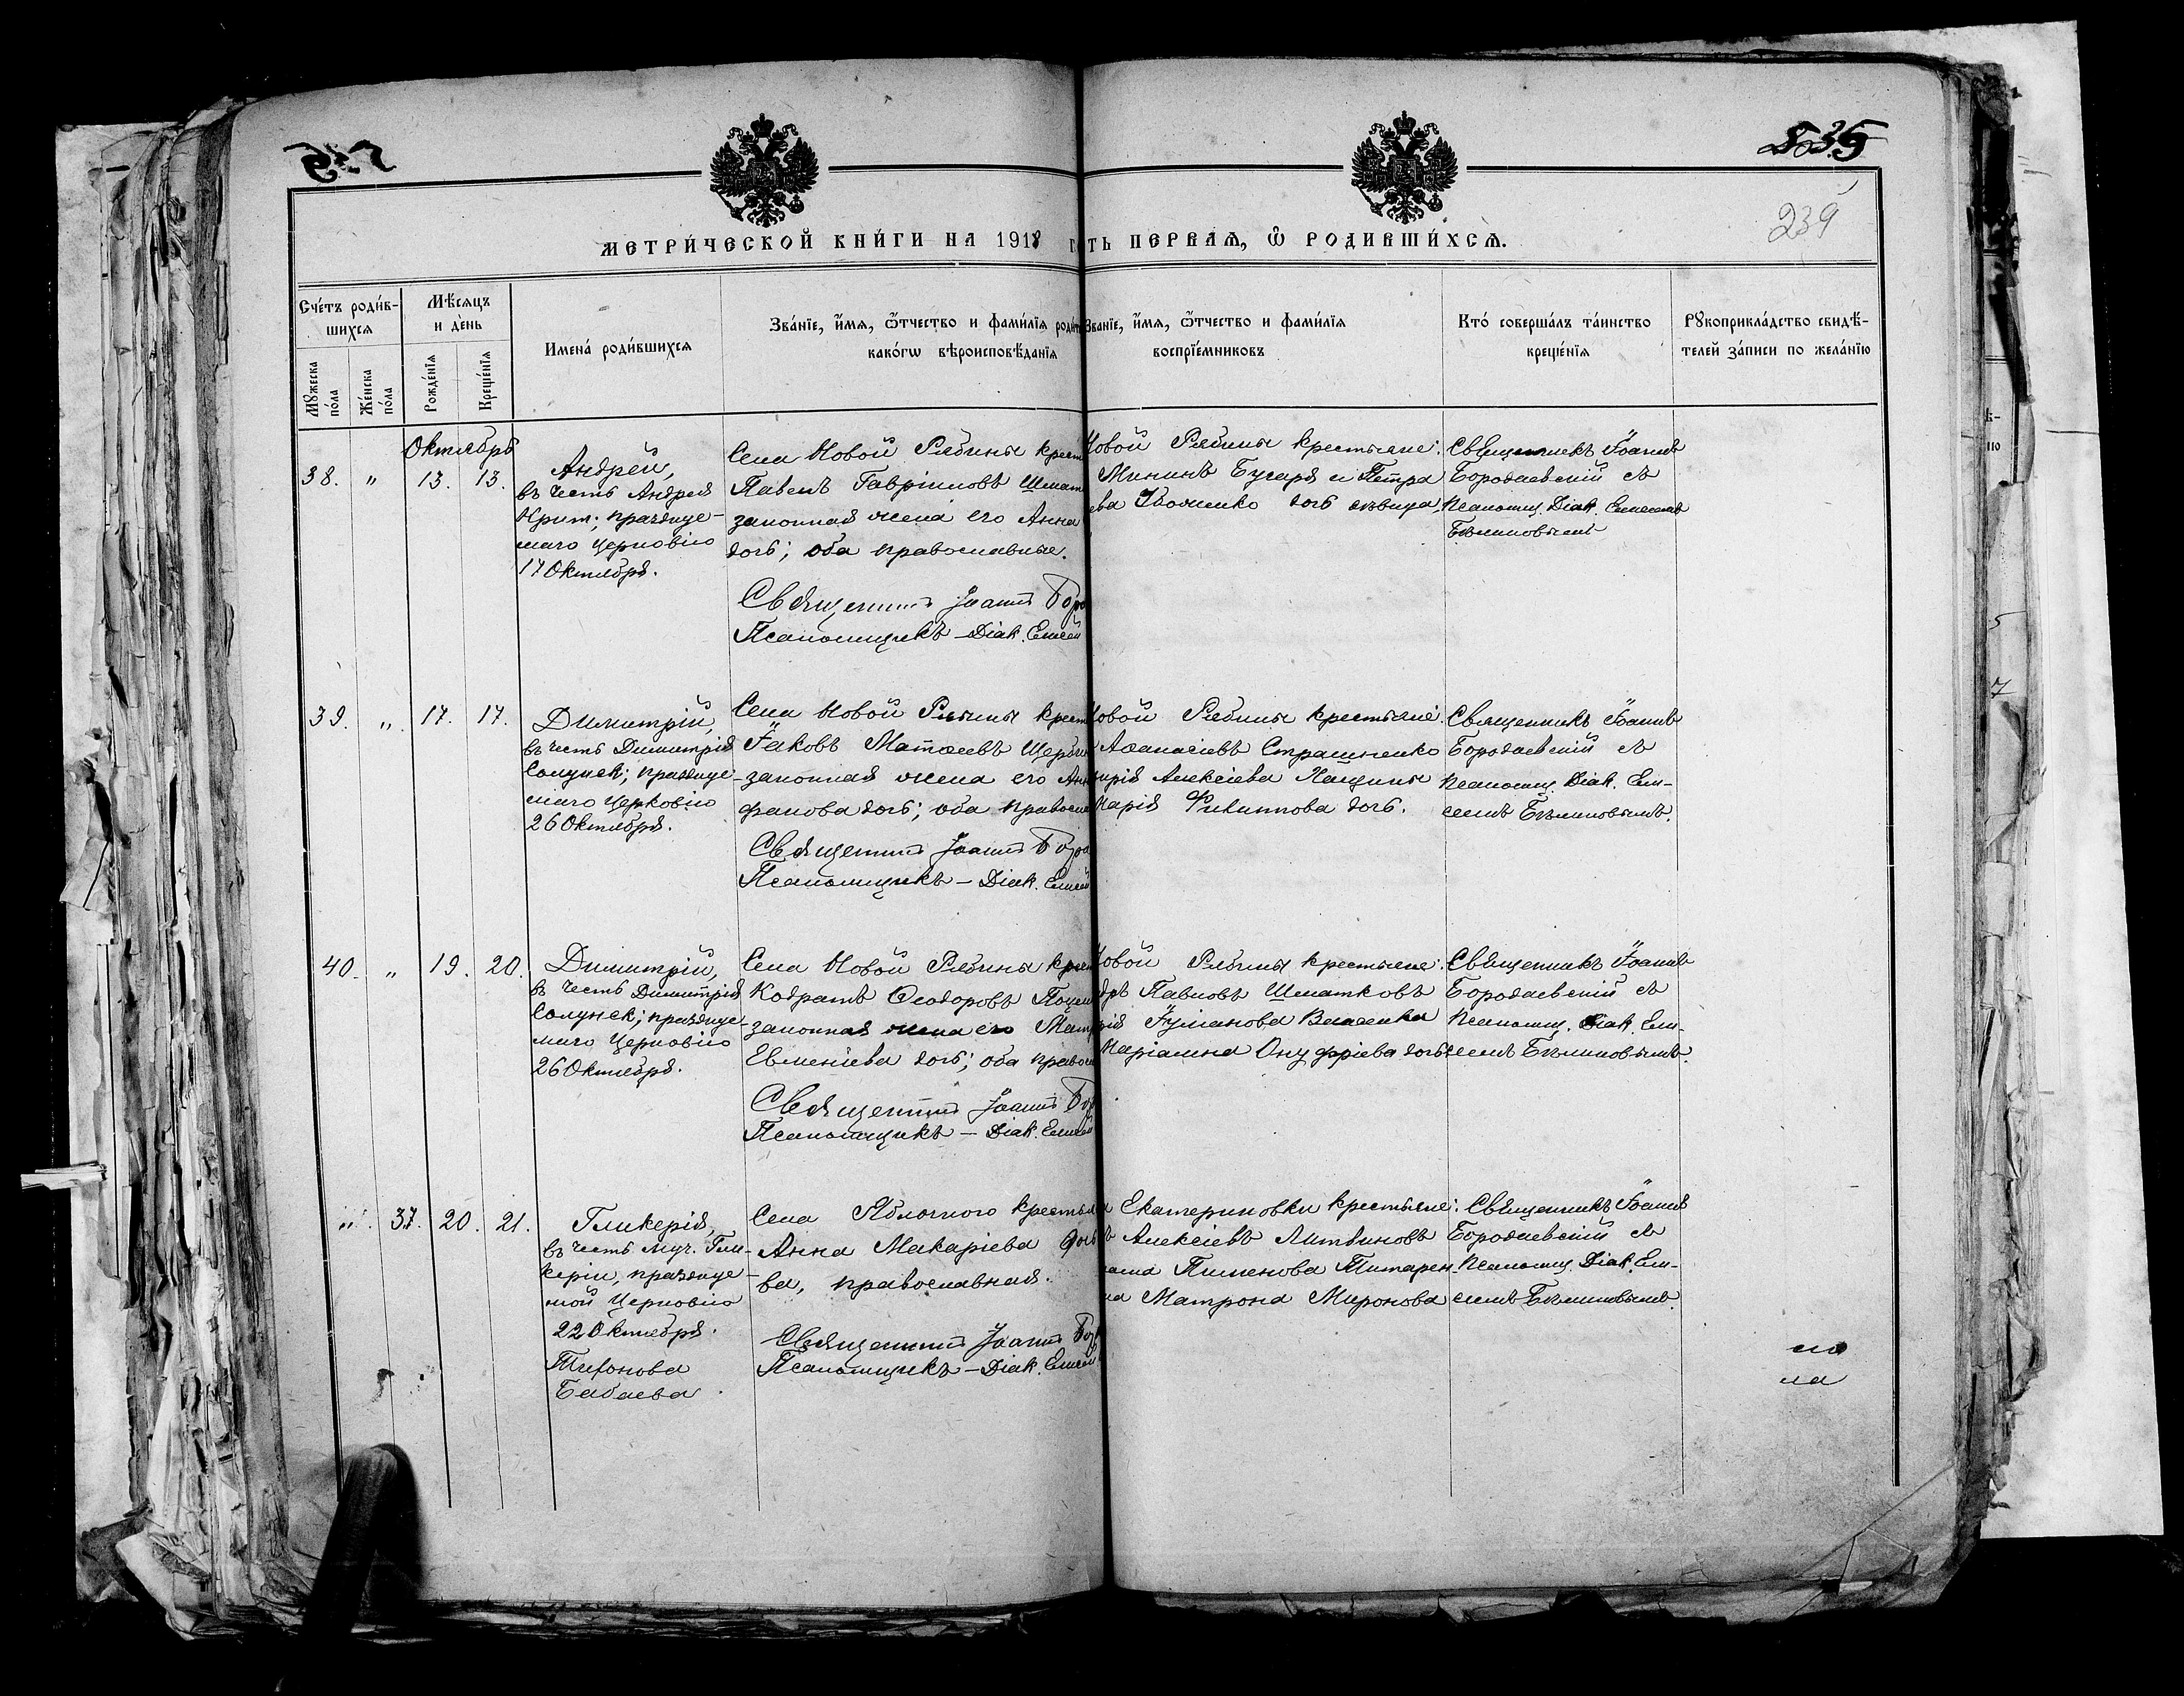 835
239
МЕТРИ́ЧЕСКОЙ КНИ́ГИ НА 1918 ТЬ ПЕРВАѦ, Ѿ РОДИВШИ́ХСѦ.
Сче́тъ роди́в-
шихсѧ
Мꙋжеска по́ла
Же́нска по́ла
Мѣ́сѧцъ
и де́нь
Рожде́нїѧ
Креще́нїѧ
Имена́ роди́вшихсѧ
Зва́нїе, и́мѧ, ѻ́тчество и фами́лїѧ роди
како́гѡ вѣроисповѣ́данїѧ
Зва́нїе, и́мѧ, ѻ́тчество и фами́лїѧ
воспрїе́мниковъ
Кто́ соверша́лъ та́инство
креще́нїѧ
Рꙋкоприкла́дство свидѣ́-
телей за́писи по жела́нїю
Октябрь
38. „ 13. 13.
Андрей,
въ честь Андрея
Крит; празднуе-
маго Церковію
17 Октября.
Села Новой Рябины крест
Павелъ Гавріиловъ Шмат
законная жена его Анна
дочь; оба православные.
Священникъ Іоаннъ Бор
Псаломщикъ – Діак. Елисей
Новой Рябины крестьяне:
Мининъ Бугаръ и Петра
дочь дѣвица.
Священникъ Іоаннъ
Бородаевскій съ
Псаломщ. Діак. Елисеемъ
Бѣликовымъ
39. „. 17. 17.
Димитрій,
въ честь Димитрія
Солунск; празднуе-
маго Церковію
26 Октября.
Села Новой Рябины крест
Іаковъ Матѳеевъ Щерби
законная жена его Анн
фанова дочь; оба правосла
Священникъ Іоаннъ Боро
Псаломщикъ – Діак. Елисей
овой Рябины крестьяне:
Аѳанасіевъ Страшненко
Алексіева Лащины
Марія Филиппова дочь.
Священникъ Іоаннъ
Бородаевскій съ
Псаломщ. Діак. Ели-
сеемъ Бѣликовымъ.
40. „ 19. 20.
Димитрій,
въ честь Димитрія
Солунск; празднуе-
маго Церковію
26 Октября.
Села Новой Рябины крест
Кодратъ Ѳеодоровъ
законная жена его Матр
Евменіева дочь; оба правосл
Священникъ Іоаннъ Бор
Псаломщикъ – Діак. Елисей
Новой Рябины крестьяне:
дръ Павловъ Шматковъ
Маріамна Онуфріева дочь
Священникъ Іоаннъ
Бородаевскій съ
Псаломщ. Діак. Ели-
сеемъ Бѣликовымъ.
„. 37. 20. 21.
Гликерія,
въ честь муч. Гли-
керіи, празднуе-
мой Церковію
22 Октября.
Тихонова
Бабаева.
Села Яблочного крестья
Анна Макаріева дочь
ва, православная.
Священникъ Іоаннъ Бор
Псаломщикъ – Діак. Елисей
Екатериновки крестьяне:
Алексіевъ Литвиновъ
Пименова Титарен-
Матрона Миронова
Священникъ Іоаннъ
Бородаевскій съ
Псаломщ. Діак. Ели-
сеемъ Бѣликовымъ.